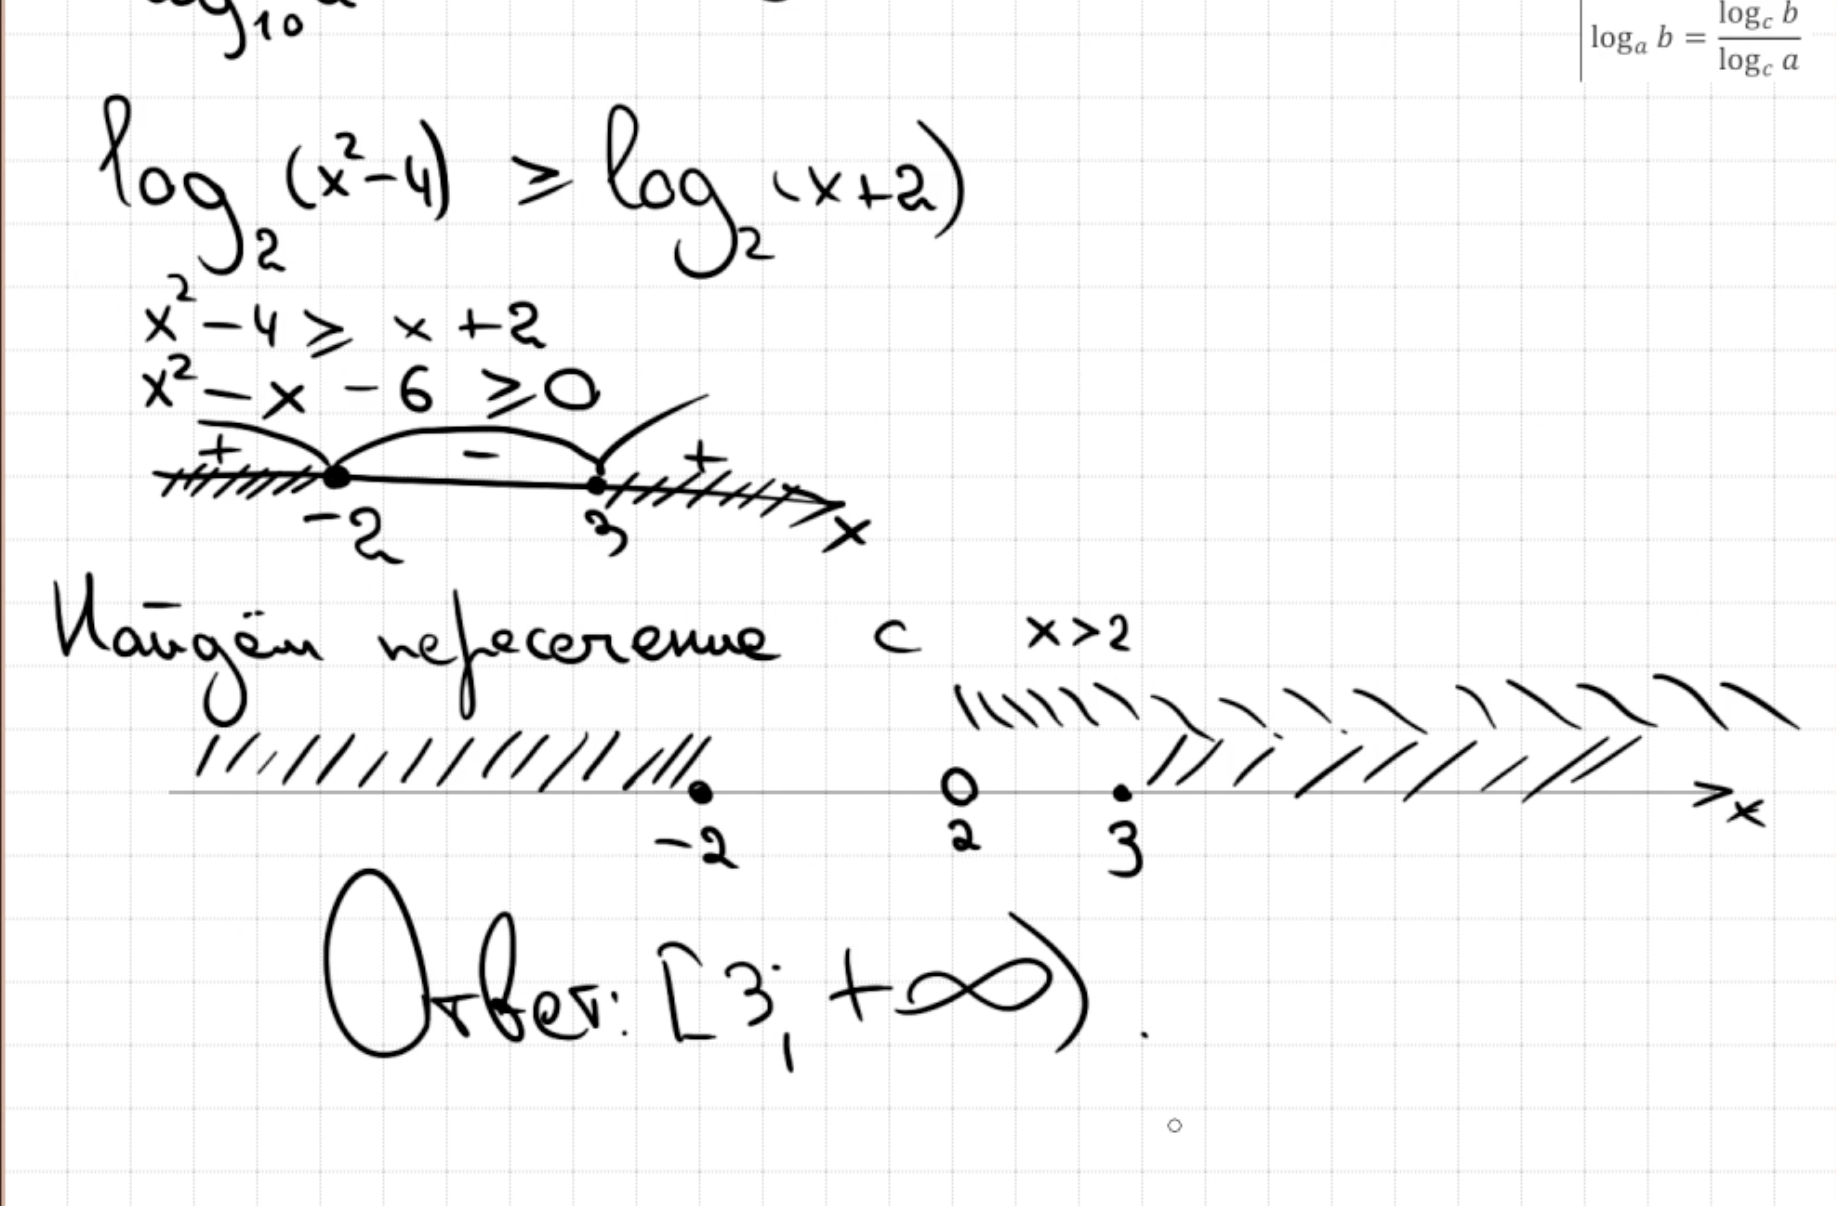 log₁₀
logₐ b = log_c b / log_c a
log₂ (x²-4) ⩾ log₂ (x+2)
x² - 4 ⩾ x + 2
x² - x - 6 ⩾ 0
+ - +
-2 3 x
Найдём пересечение с x>2
-2 2 3 x
Ответ: [3; +∞).